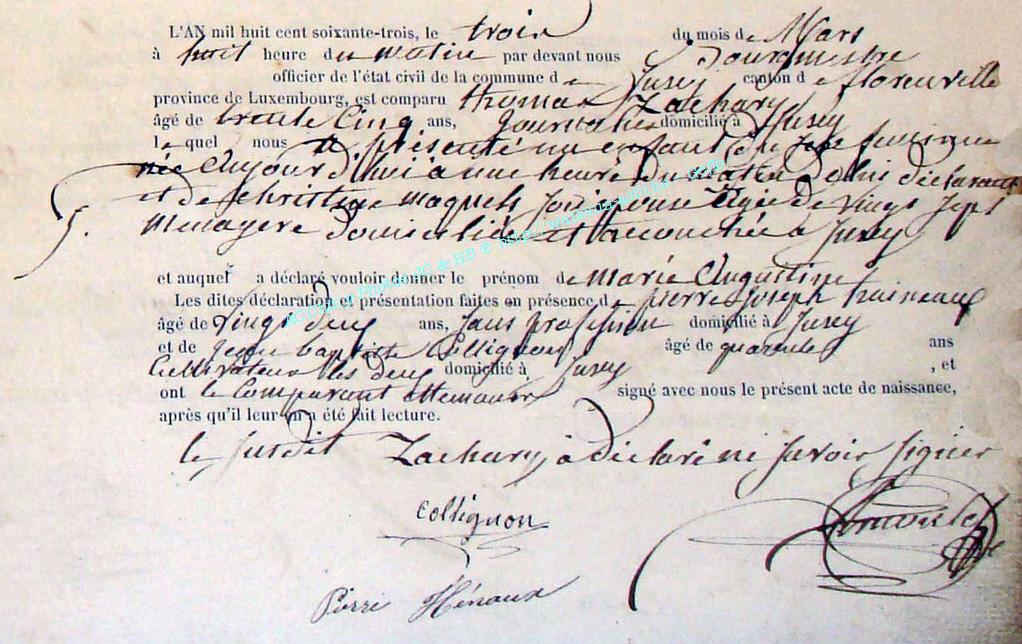 L'AN mil huit cent soixante-trois, le trois du mois de Mars
à huit heure du matin par devant nous Bourgmestre
officier de l'état civil de la commune de Jusey canton de florenville
province de Luxembourg, est comparu thomas Zachary
âgé de trente Cinq ans, journalier domicilié à Jusey
lequel nous a présenté un enfant du sexe feminin
née aujourd'hui à une heure du matin de lui déclarant
et de christine maquels son épouse agée de vingt sept
5. Menagere domiciliée et accouchée à Jusey
et auquel a déclaré vouloir donner le prénom de marie Augustine
Les dites déclaration et présentation faites en présence de pierre joseph
âgé de vingt deux ans, sans profession domicilié à Jusey
et de jean baptiste Collignon âgé de quarante ans
Cultivateur les deux domicilié à Jusey , et
ont le Comparant signé avec nous le présent acte de naissance,
après qu'il leur en a été fait lecture.
le susdit Zachary à déclaré ni savoir signer
Collignon
Pierre Hénaux